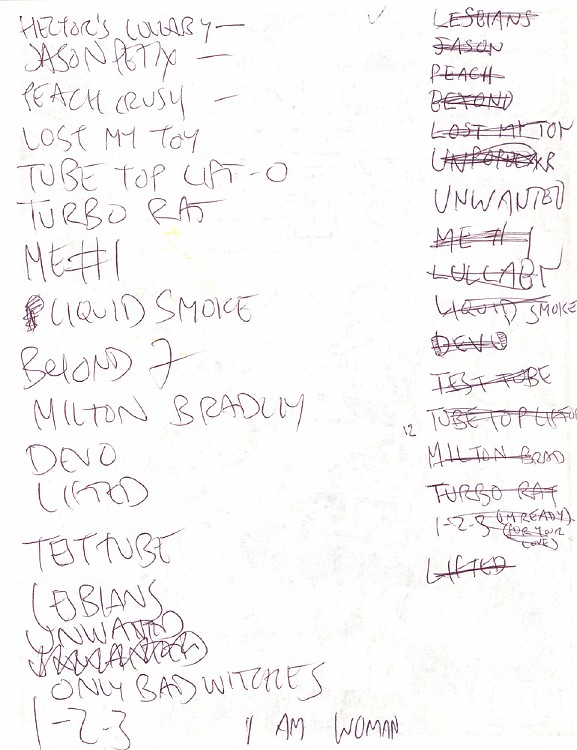 HECTOR'S LULLABY —
JASON PETTY —
PEACH CRUSH —
LOST MY TOY
TUBE TOP LIFT-O
TURBO RAT
ME#1
LIQUID SMOKE
BEYOND 7
MILTON BRADLEY
DEVO
LIFTED
TEST TUBE
LESBIANS
UNWANTED
ONLY BAD WITCHES
1-2-3
I AM WOMAN
LESBIANS
JASON
PEACH
BEYOND
LOST MY TOY
UNWANTED
ME #1
LULLABY
LIQUID SMOKE
DEVO
TEST TUBE
12
TUBE TOP LIFTOF
MILTON BRAD
TURBO RAT
1-2-3 (I'M READY)
(FOR YOUR
LOVE)
LIFTED